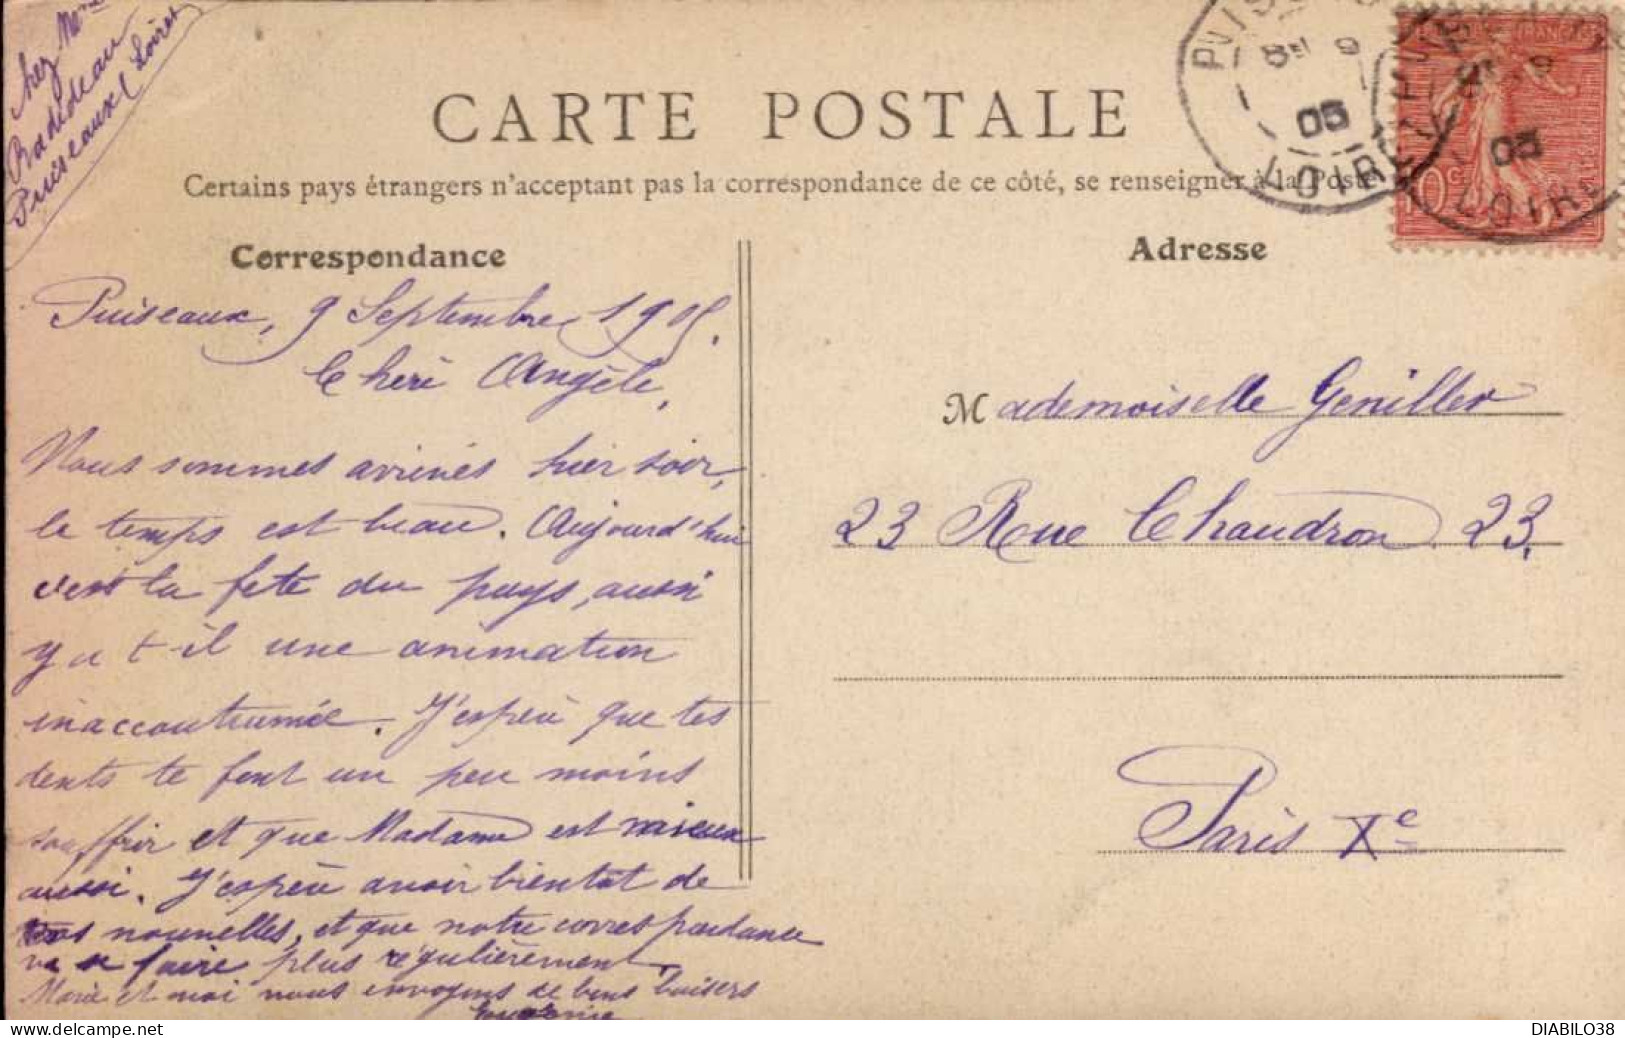 chez Mme
Badideau
Puiseaux Loiret
CARTE POSTALE
Certains pays étrangers n'acceptent pas la correspondance de ce côté, se renseigner à la Poste
Correspondance
Adresse
Puiseaux, 9 Septembre 1905.
Chère Angèle,
Nous sommes arrivés hier soir,
le temps est beau. Aujourd'hui
c'est la fête du pays, aussi
y a t-il une animation
inaccoutumée. J'espère que tes
dents te font un peu moins
souffrir et que Madame est mieux
aussi. J'espère avoir bientôt de
vos nouvelles, et que notre correspondance
va se faire plus régulièrement.
Marie et moi nous envoyons de bons baisers
Mademoiselle Geniller
23 Rue Chaudron 23.
Paris Xe
PUIS
9
05
LOIRET
FRANÇAISE
10c
05
LOIRE
DIABILO38